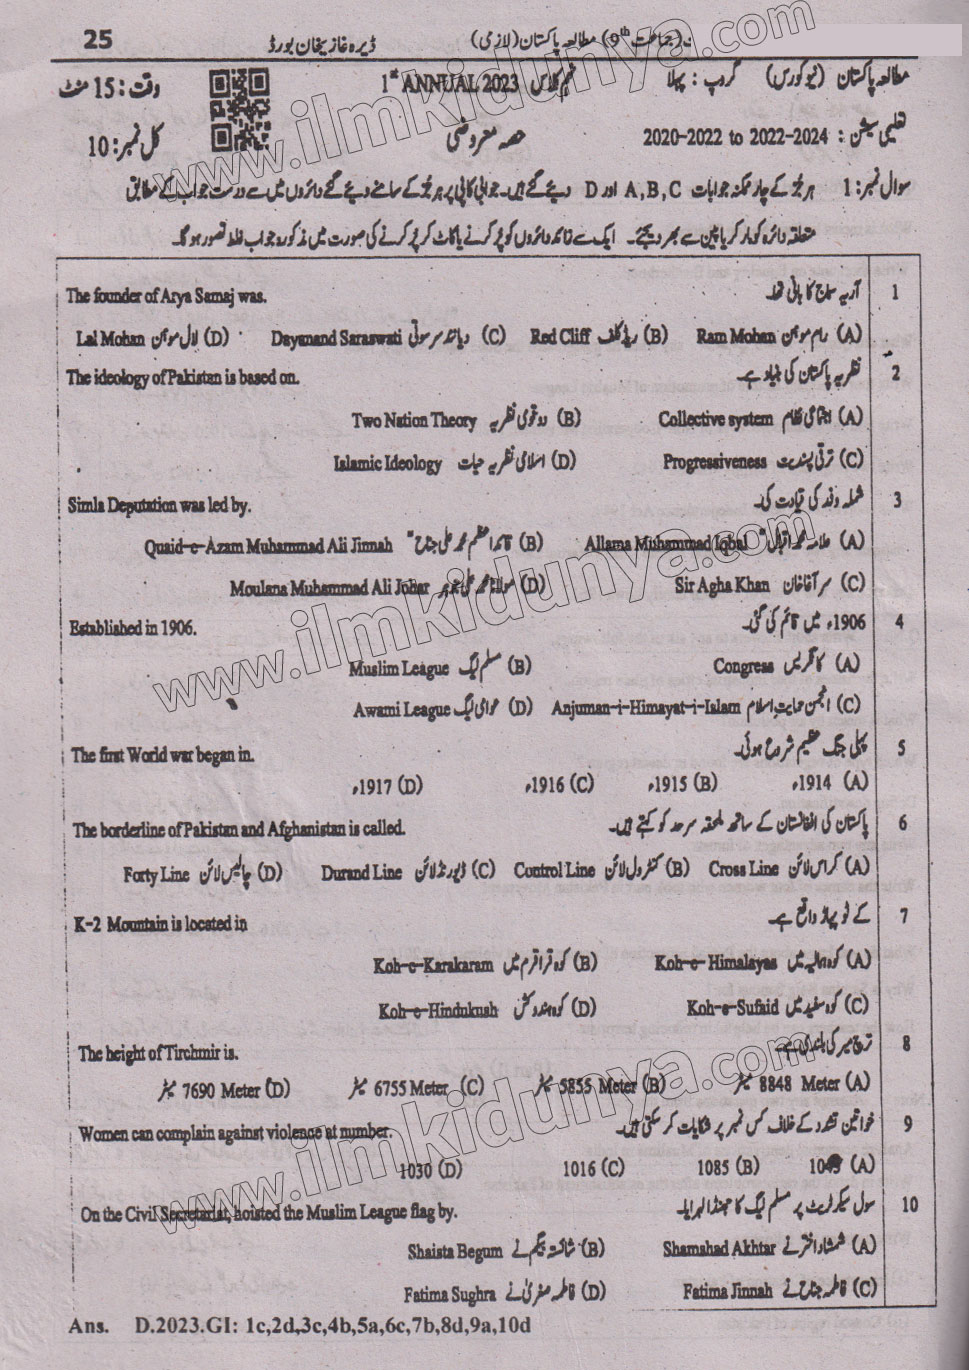 25
ڈیرہ غازیخان بورڈ
(جماعت 9th) مطالعہ پاکستان (لازمی)
مطالعہ پاکستان (نیو کورس) گروپ : پہلا 1st ANNUAL 2023 نہم کلاس وقت : 15 منٹ
تعلیمی سیشن : 2020-2022 to 2022-2024 حصہ معروضی کل نمبر : 10
سوال نمبر : 1 ہر جُز کے چار ممکنہ جوابات A,B,C اور D دیئے گئے ہیں۔ جوابی کاپی پر ہر جُز کے سامنے دیئے گئے دائروں میں سے درست جواب کے مطابق
متعلقہ دائرہ کو مارکر یا پین سے بھر دیجئے۔ ایک سے زائد دائروں کو پُر کرنے یا کاٹ کر پُر کرنے کی صورت میں مذکورہ جواب غلط تصور ہو گا۔
1 آریہ سماج کا بانی تھا۔ The founder of Arya Samaj was.
(A) رام موہن Ram Mohan (B) ریڈ کلف Red Cliff (C) دیانند سرسوتی Dayanand Saraswati (D) لال موہن Lal Mohan
2 نظریہ پاکستان کی بنیاد ہے۔ The ideology of Pakistan is based on.
(A) اجتماعی نظام Collective system (B) دو قومی نظریہ Two Nation Theory
(C) ترقی پسندیت Progressiveness (D) اسلامی نظریہ حیات Islamic Ideology
3 شملہ وفد کی قیادت کی۔ Simla Deputation was led by.
(A) علامہ محمد اقبالؒ Allama Muhammad Iqbal (B) قائداعظم محمد علی جناحؒ Quaid-e-Azam Muhammad Ali Jinnah
(C) سر آغا خان Sir Agha Khan (D) مولانا محمد علی جوہر Moulana Muhammad Ali Johar
4 1906ء میں قائم کی گئی۔ Established in 1906.
(A) کانگریس Congress (B) مسلم لیگ Muslim League
(C) انجمن حمایت اسلام Anjuman-i-Himayat-i-Islam (D) عوامی لیگ Awami League
5 پہلی جنگ عظیم شروع ہوئی۔ The first World war began in.
(A) 1914ء (B) 1915ء (C) 1916ء (D) 1917ء
6 پاکستان کی افغانستان کے ساتھ ملحقہ سرحد کو کہتے ہیں۔ The borderline of Pakistan and Afghanistan is called.
(A) کراس لائن Cross Line (B) کنٹرول لائن Control Line (C) ڈیورنڈ لائن Durand Line (D) چالیس لائن Forty Line
7 کے ٹو پہاڑ واقع ہے۔ K-2 Mountain is located in
(A) کوہ ہمالیہ میں Koh-e-Himalayas (B) کوہ قراقرم میں Koh-e-Karakaram
(C) کوہ سفید میں Koh-e-Sufaid (D) کوہ ہندوکش Koh-e-Hindukush
8 ترچ میر کی بلندی ہے۔ The height of Tirchmir is.
(A) 8848 Meter میٹر (B) 5855 Meter میٹر (C) 6755 Meter میٹر (D) 7690 Meter میٹر
9 خواتین تشدد کے خلاف کس نمبر پر شکایات کر سکتی ہیں۔ Women can complain against violence at number.
(A) (B) 1085 (C) 1016 (D) 1030
10 سول سیکرٹریٹ پر مسلم لیگ کا جھنڈا لہرایا۔ On the Civil Secretariat, hoisted the Muslim League flag by.
(A) شمشاد اختر نے Shamahad Akhtar (B) شائستہ بیگم نے Shaista Begum
(C) فاطمہ جناح نے Fatima Jinnah (D) فاطمہ صغریٰ نے Fatima Sughra
Ans. D.2023.GI: 1c,2d,3c,4b,5a,6c,7b,8d,9a,10d
www.ilmkidunya.com
www.ilmkidunya.com
www.ilmkidunya.com